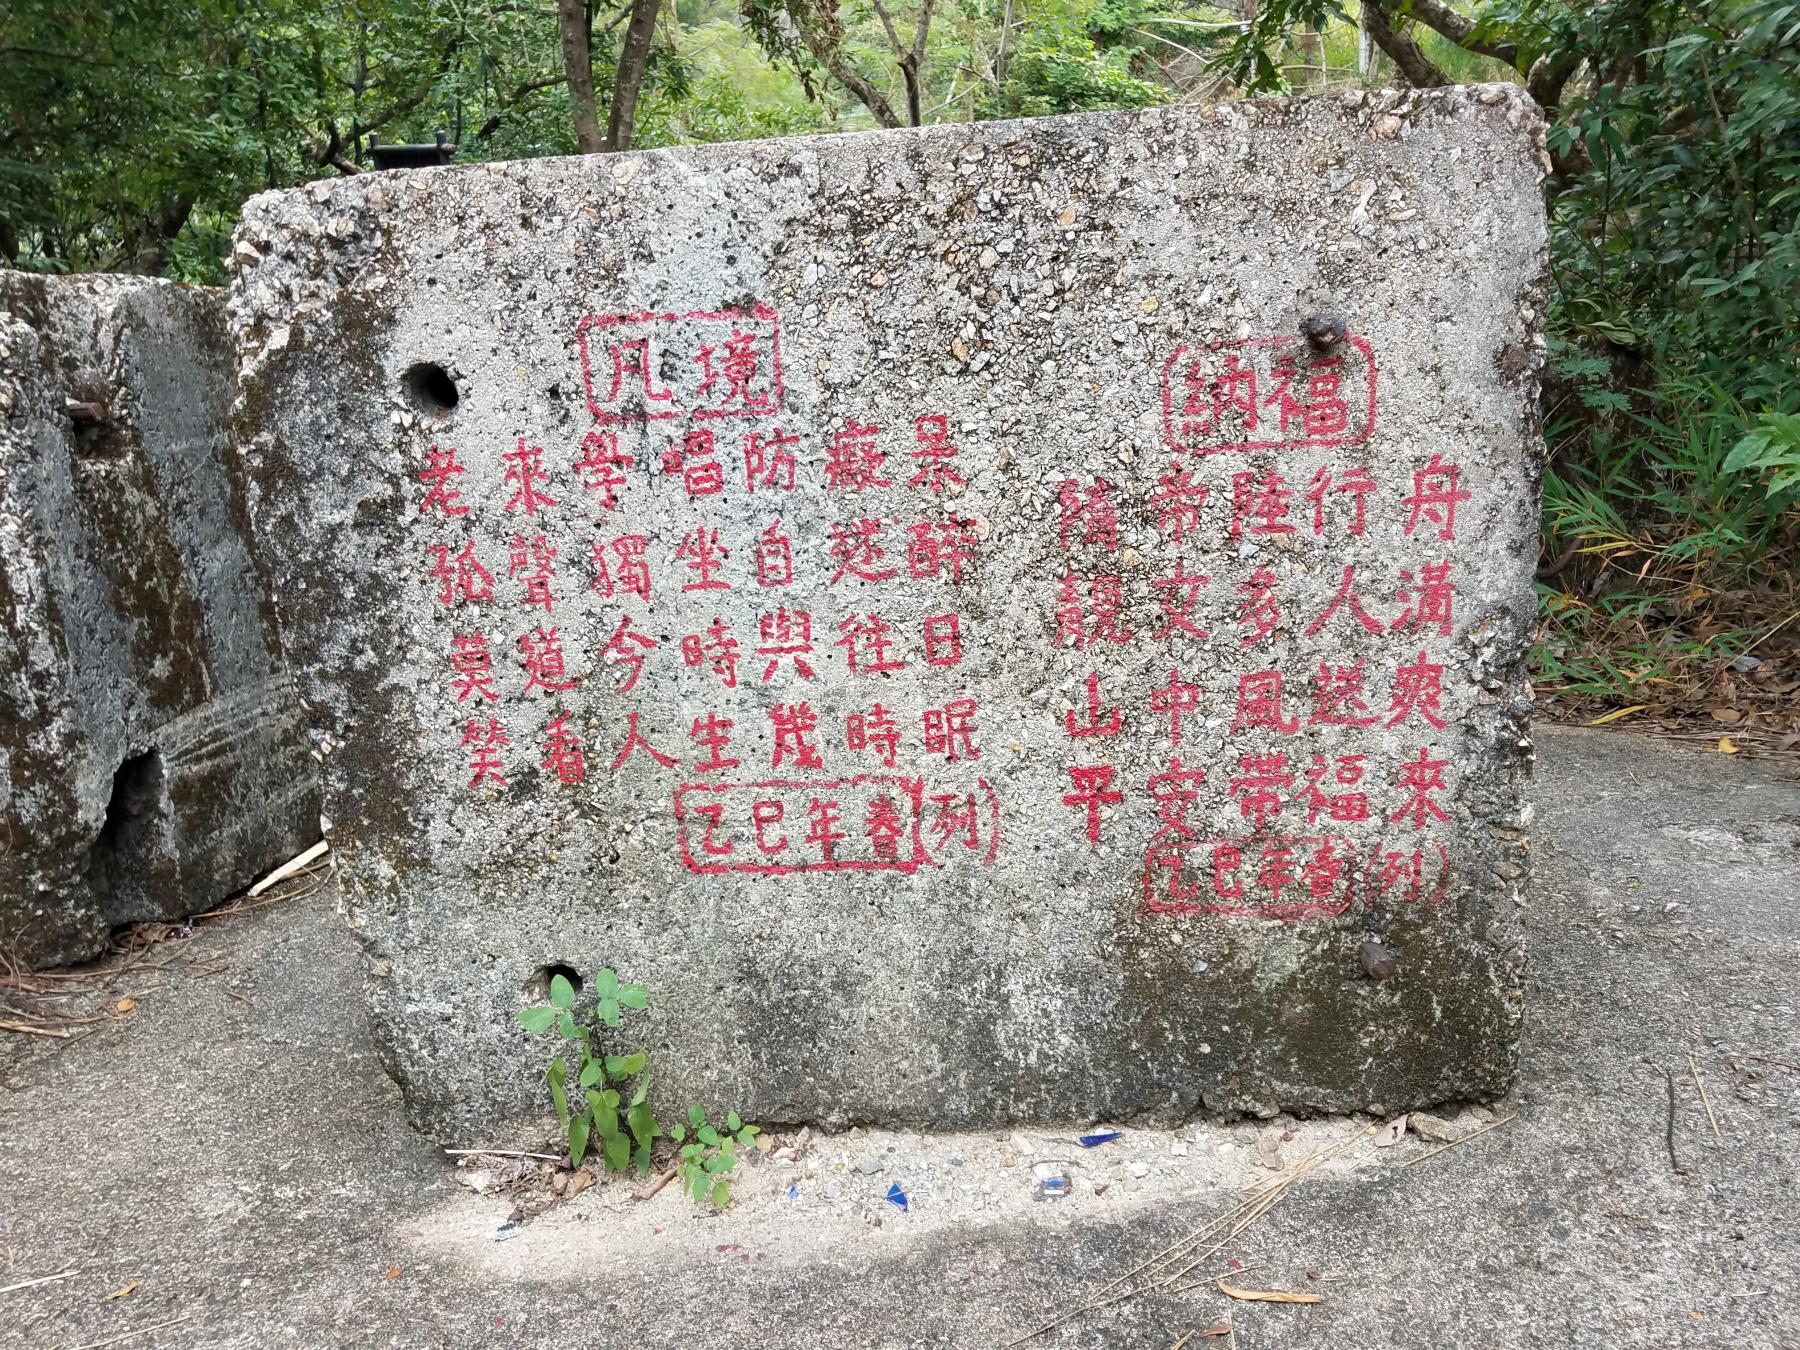 凡境
老來學唱防癡呆
孤聲獨坐自迷醉
莫道今時與往日
笑看人生幾時眠
乙巳年春(列)
納福
隋帝陸行舟
靚女多人滿
山中風送爽
平安帶福來
乙巳年春(列)